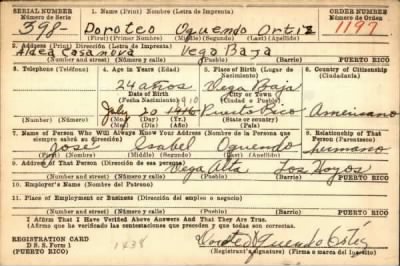 SERIAL NUMBER 1. Name (Print) (Nombre) (Letra de Imprenta) ORDER NUMBER
Número de Serie Número de Orden
398- Doroteo Oquendo Ortiz 1197
(First) (Primer Nombre) (Middle) (Segundo) (Last) (Apellido)
2. Address (Print) Dirección (Letra de Imprenta)
Aldea Casanova Vega Baja
(Number and street) (Número y calle) (Town) (Pueblo) PUERTO RICO
3. Telephone (Teléfono) 4. Age in Years (Edad) 5. Place of Birth (Lugar de Nacimiento) 6. Country of Citizenship (Ciudadanía)
24 años Vega Baja
Date of Birth (Fecha Nacimiento) City or Town (Ciudad o Pueblo)
July 20 1916 Puerto Rico Americano
(Number) (Número) (Mo.) (Day) (Yr.) (State or country)
(Mes) (Día) (Año) (Estado o país)
7. Name of Person Who Will Always Know Your Address (Nombre de la Persona que siempre sabrá su dirección) 8. Relationship of That Person (Parentesco)
Jose Isabel Oquendo hermano
(First) (Primer) (Middle) (Segundo) (Last) (Apellido)
9. Address of That Person (Dirección de esa persona)
Vega Alta Los Hoyos
(Number and street) (Número y calle) (Town) (Pueblo) PUERTO RICO
10. Employer's Name (Nombre del Patrono)
11. Place of Employment or Business (Dirección del empleo o negocio)
(Number and street) (Número y calle) (Town) (Pueblo) PUERTO RICO
I Affirm That I Have Verified Above Answers And That They Are True.
(Afirmo que he verificado las contestaciones que preceden y que todas son correctas.)
REGISTRATION CARD
D. S. S. Form 1
PUERTO RICO
1438
Doroteo Oquendo Ortiz
(Registrant's signature) (Firma o marca del inscrito)